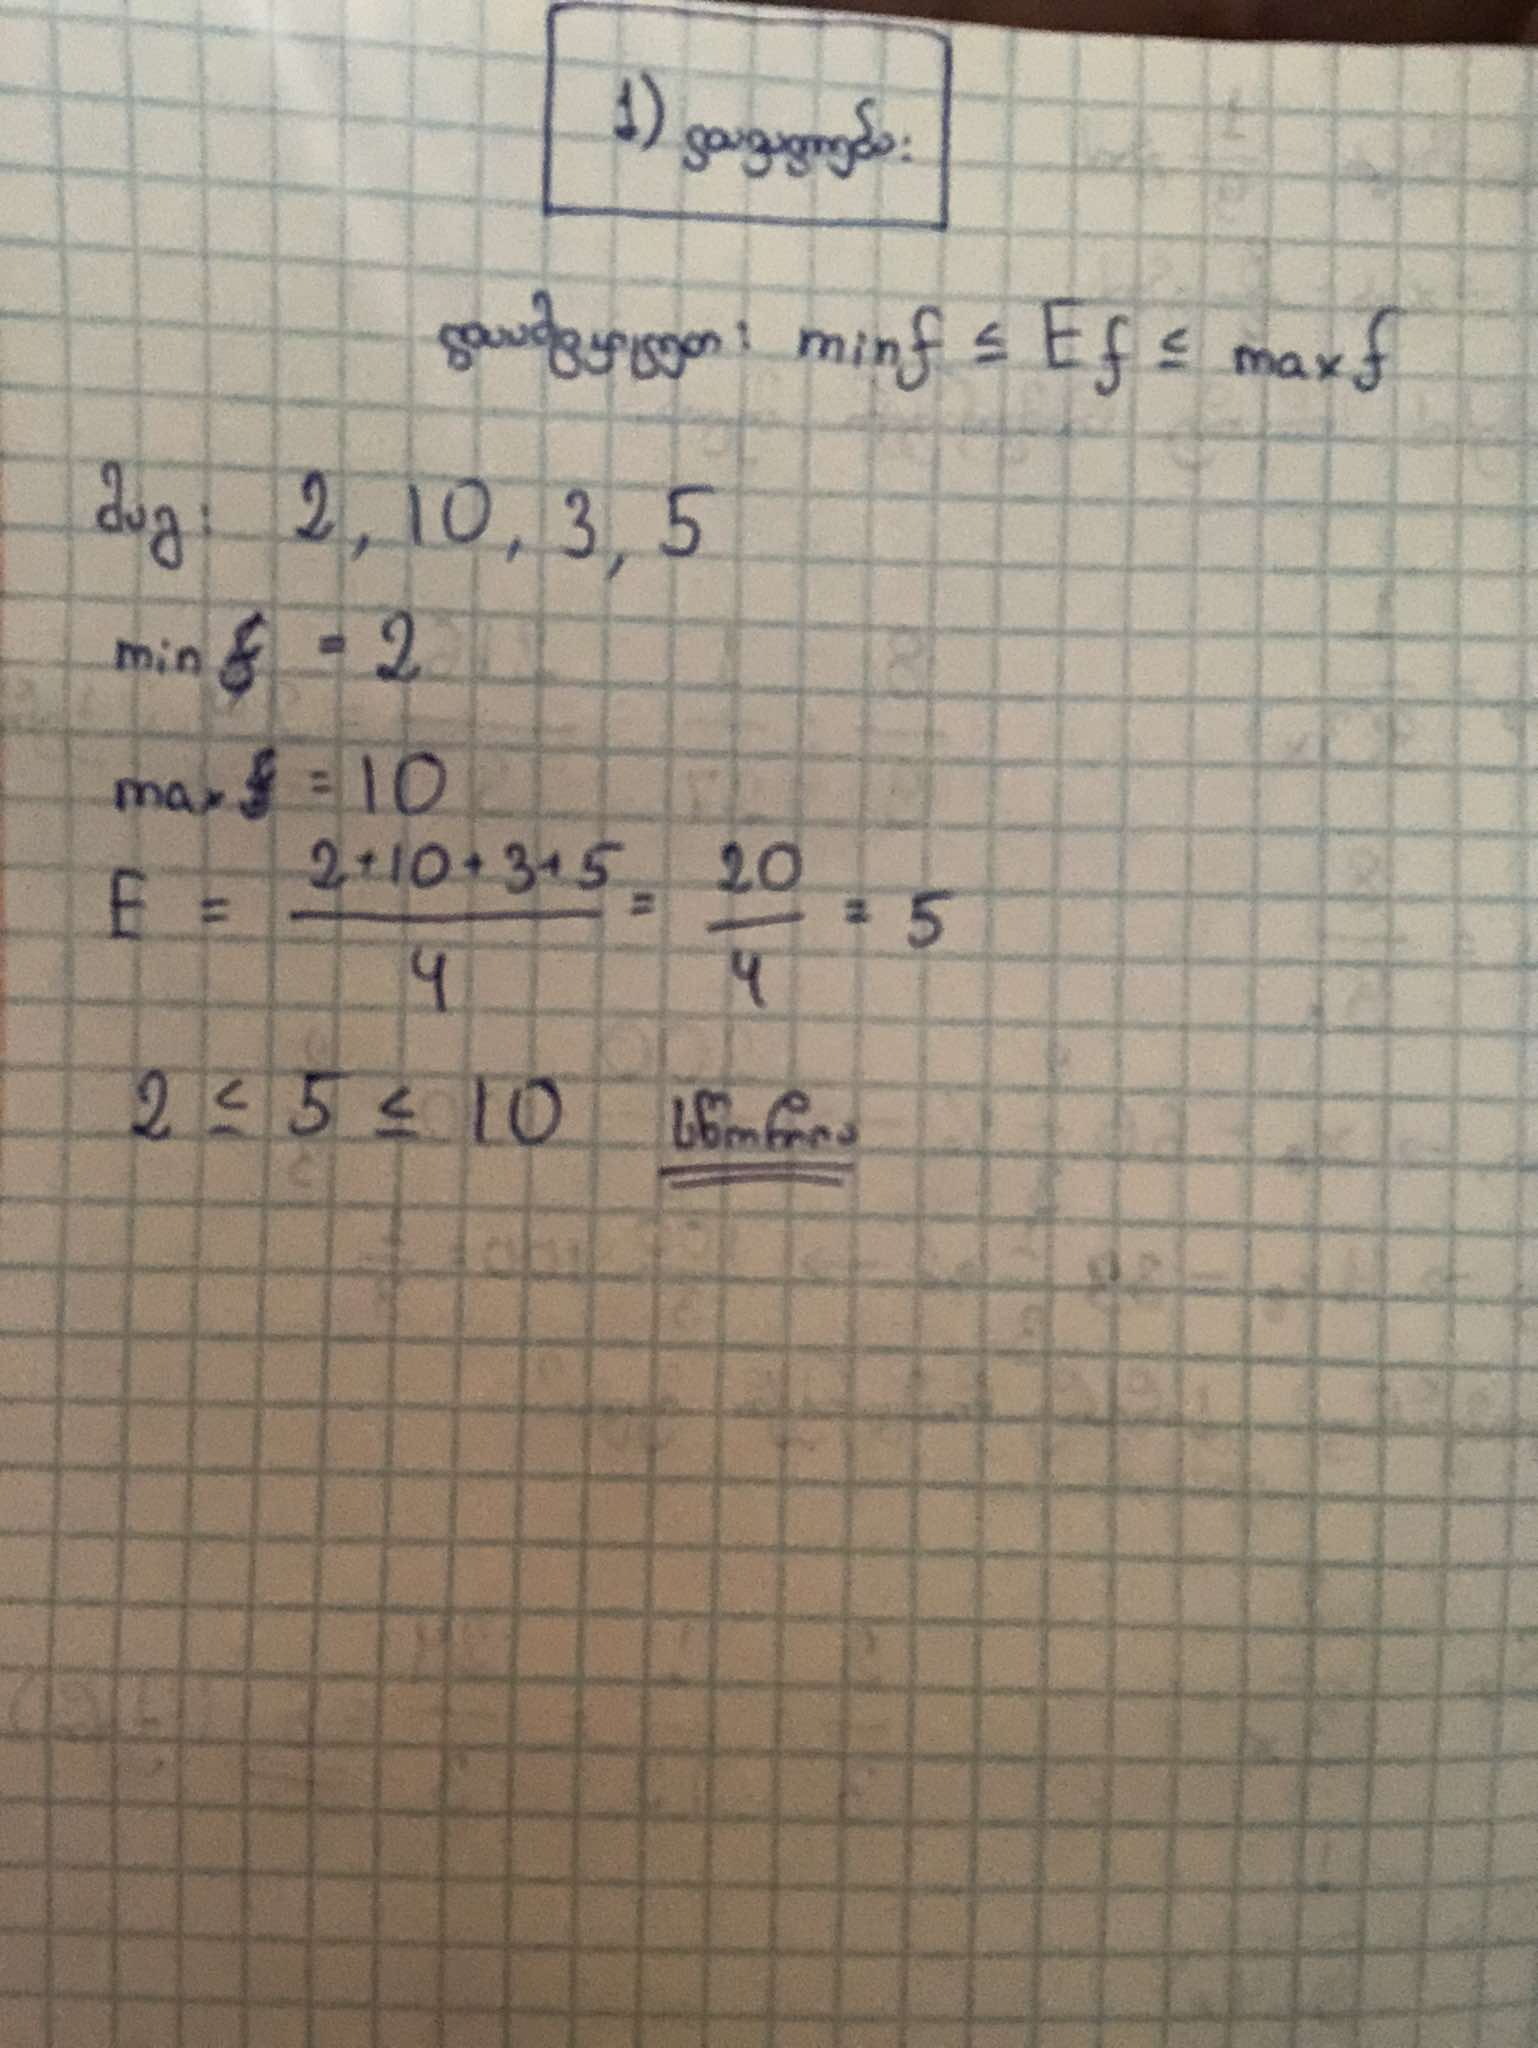 1) დავალება:
დაამტკიცეთ: min f ≤ E f ≤ max f
მაგ: 2, 10, 3, 5
min f = 2
max f = 10
E = \frac{2+10+3+5}{4} = \frac{20}{4} = 5
2 ≤ 5 ≤ 10 სწორია